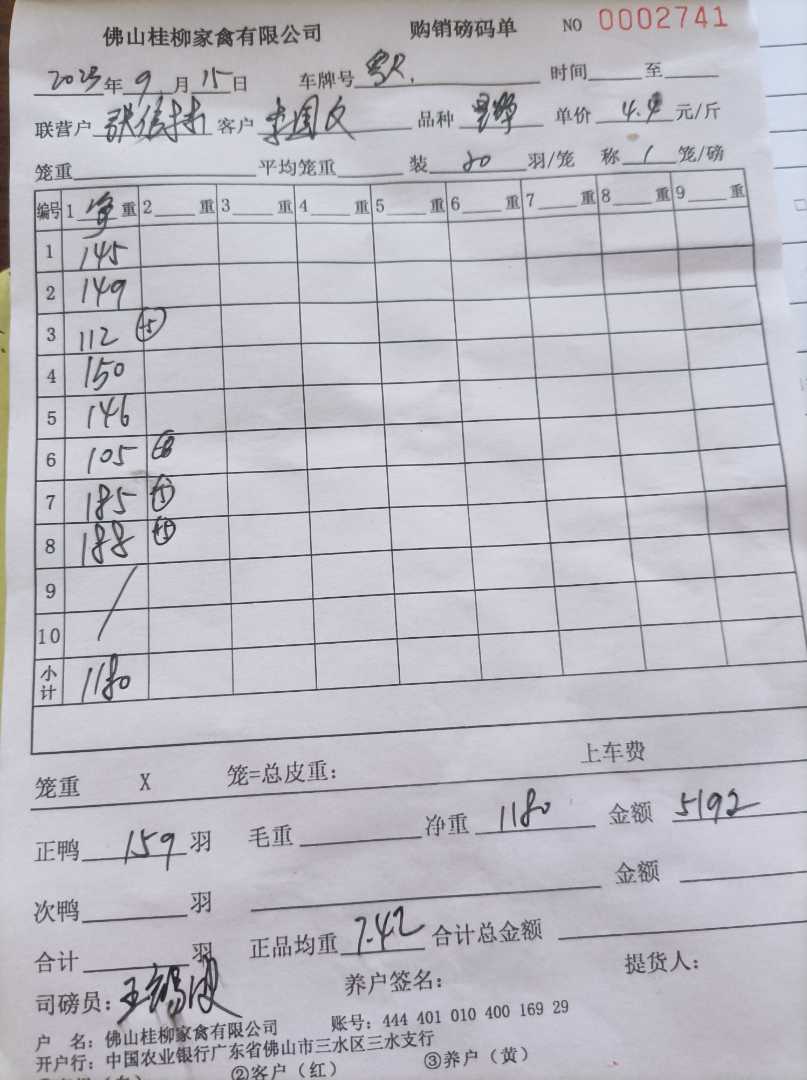 佛山桂柳家禽有限公司 购销磅码单 NO 0002741
2023年9月15日 车牌号 时间 至
联营户 客户 李国文 品种 单价 4.4 元/斤
笼重 平均笼重 装 20 羽/笼 称 1 笼/磅
编号 1 净 重 2 重 3 重 4 重 5 重 6 重 7 重 8 重 9 重
1 145
2 149
3 112
4 150
5 146
6 105
7 185
8 188
9 /
10
小计 1180
笼重 X 笼=总皮重: 上车费
正鸭 159 羽 毛重 净重 1180 金额 5192
次鸭 羽 金额
合计 羽 正品均重 7.42 合计总金额
司磅员: 养户签名: 提货人:
户 名: 佛山桂柳家禽有限公司 账号: 444 401 010 400 169 29
开户行: 中国农业银行广东省佛山市三水区三水支行
②客户（红） ③养户（黄）